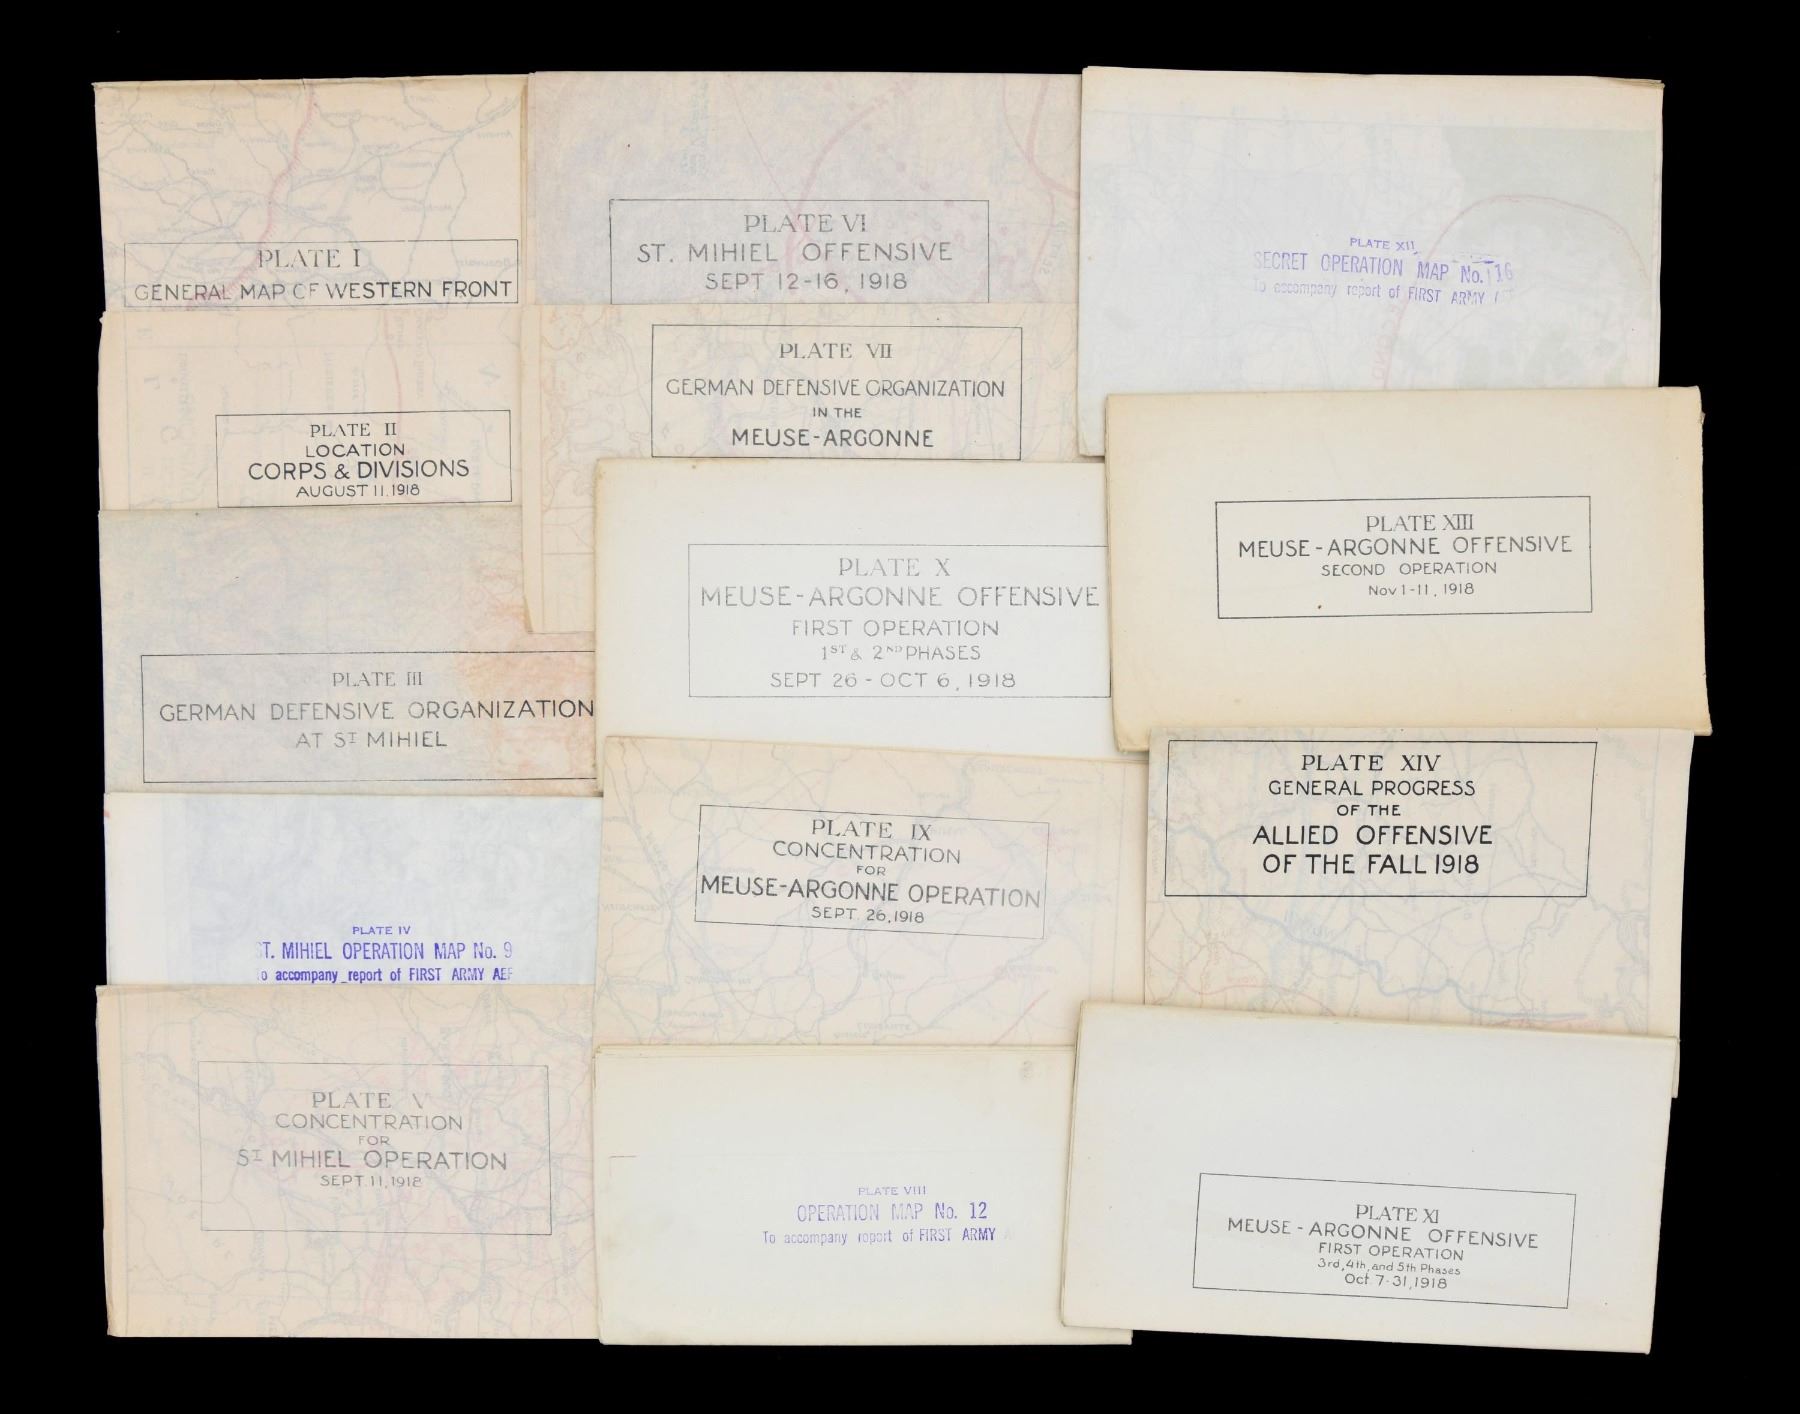 PLATE I
GENERAL MAP OF WESTERN FRONT
PLATE II
LOCATION
CORPS & DIVISIONS
AUGUST 11, 1918
PLATE III
GERMAN DEFENSIVE ORGANIZATION
AT ST MIHIEL
PLATE IV
ST. MIHIEL OPERATION MAP No. 9
To accompany report of FIRST ARMY AEF
PLATE V
CONCENTRATION
FOR
ST MIHIEL OPERATION
SEPT. 11, 1918
PLATE VI
ST. MIHIEL OFFENSIVE
SEPT 12-16, 1918
PLATE VII
GERMAN DEFENSIVE ORGANIZATION
IN THE
MEUSE-ARGONNE
PLATE X
MEUSE-ARGONNE OFFENSIVE
FIRST OPERATION
1ST & 2ND PHASES
SEPT 26 - OCT 6, 1918
PLATE IX
CONCENTRATION
FOR
MEUSE-ARGONNE OPERATION
SEPT. 26, 1918
PLATE VIII
OPERATION MAP No. 12
To accompany report of FIRST ARMY A
PLATE XII
SECRET OPERATION MAP No. 16
To accompany report of FIRST ARMY
PLATE XIII
MEUSE-ARGONNE OFFENSIVE
SECOND OPERATION
Nov 1-11, 1918
PLATE XIV
GENERAL PROGRESS
OF THE
ALLIED OFFENSIVE
OF THE FALL 1918
PLATE XI
MEUSE-ARGONNE OFFENSIVE
FIRST OPERATION
3rd, 4th, and 5th Phases
Oct. 7-31, 1918